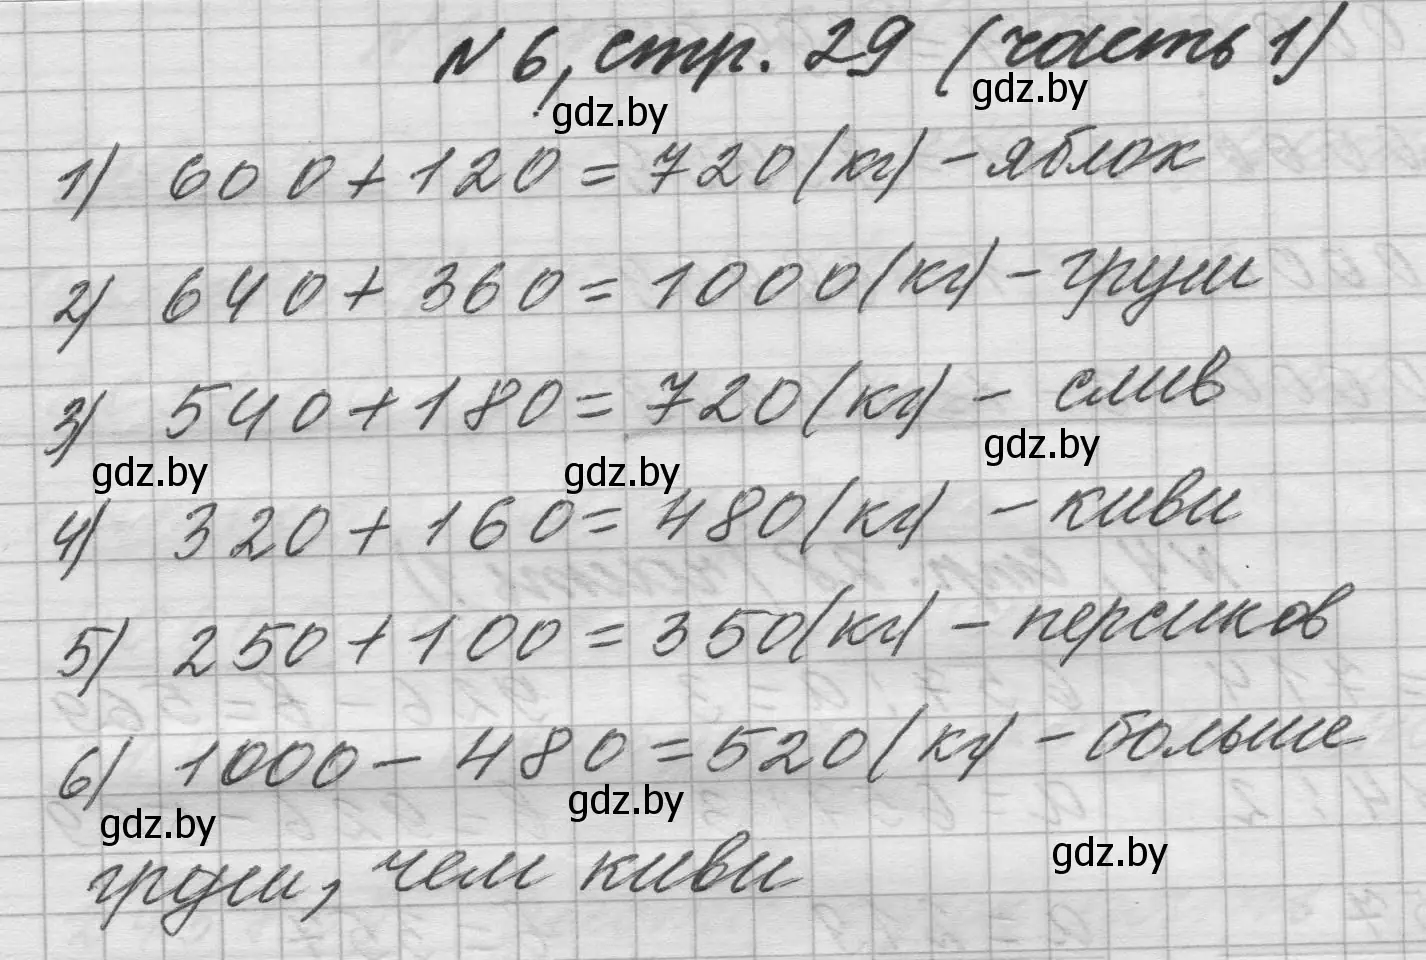 N 6, стр. 29 (часть 1)
gdz.by gdz.by
1) 600 + 120 = 720 (кг) - яблок
2) 640 + 360 = 1000 (кг) - груш
3) 540 + 180 = 720 (кг) - слив
gdz.by gdz.by gdz.by
4) 320 + 160 = 480 (кг) - киви
5) 250 + 100 = 350 (кг) - персиков
6) 1000 - 480 = 520 (кг) - больше
gdz.by gdz.by gdz.by
груш, чем киви